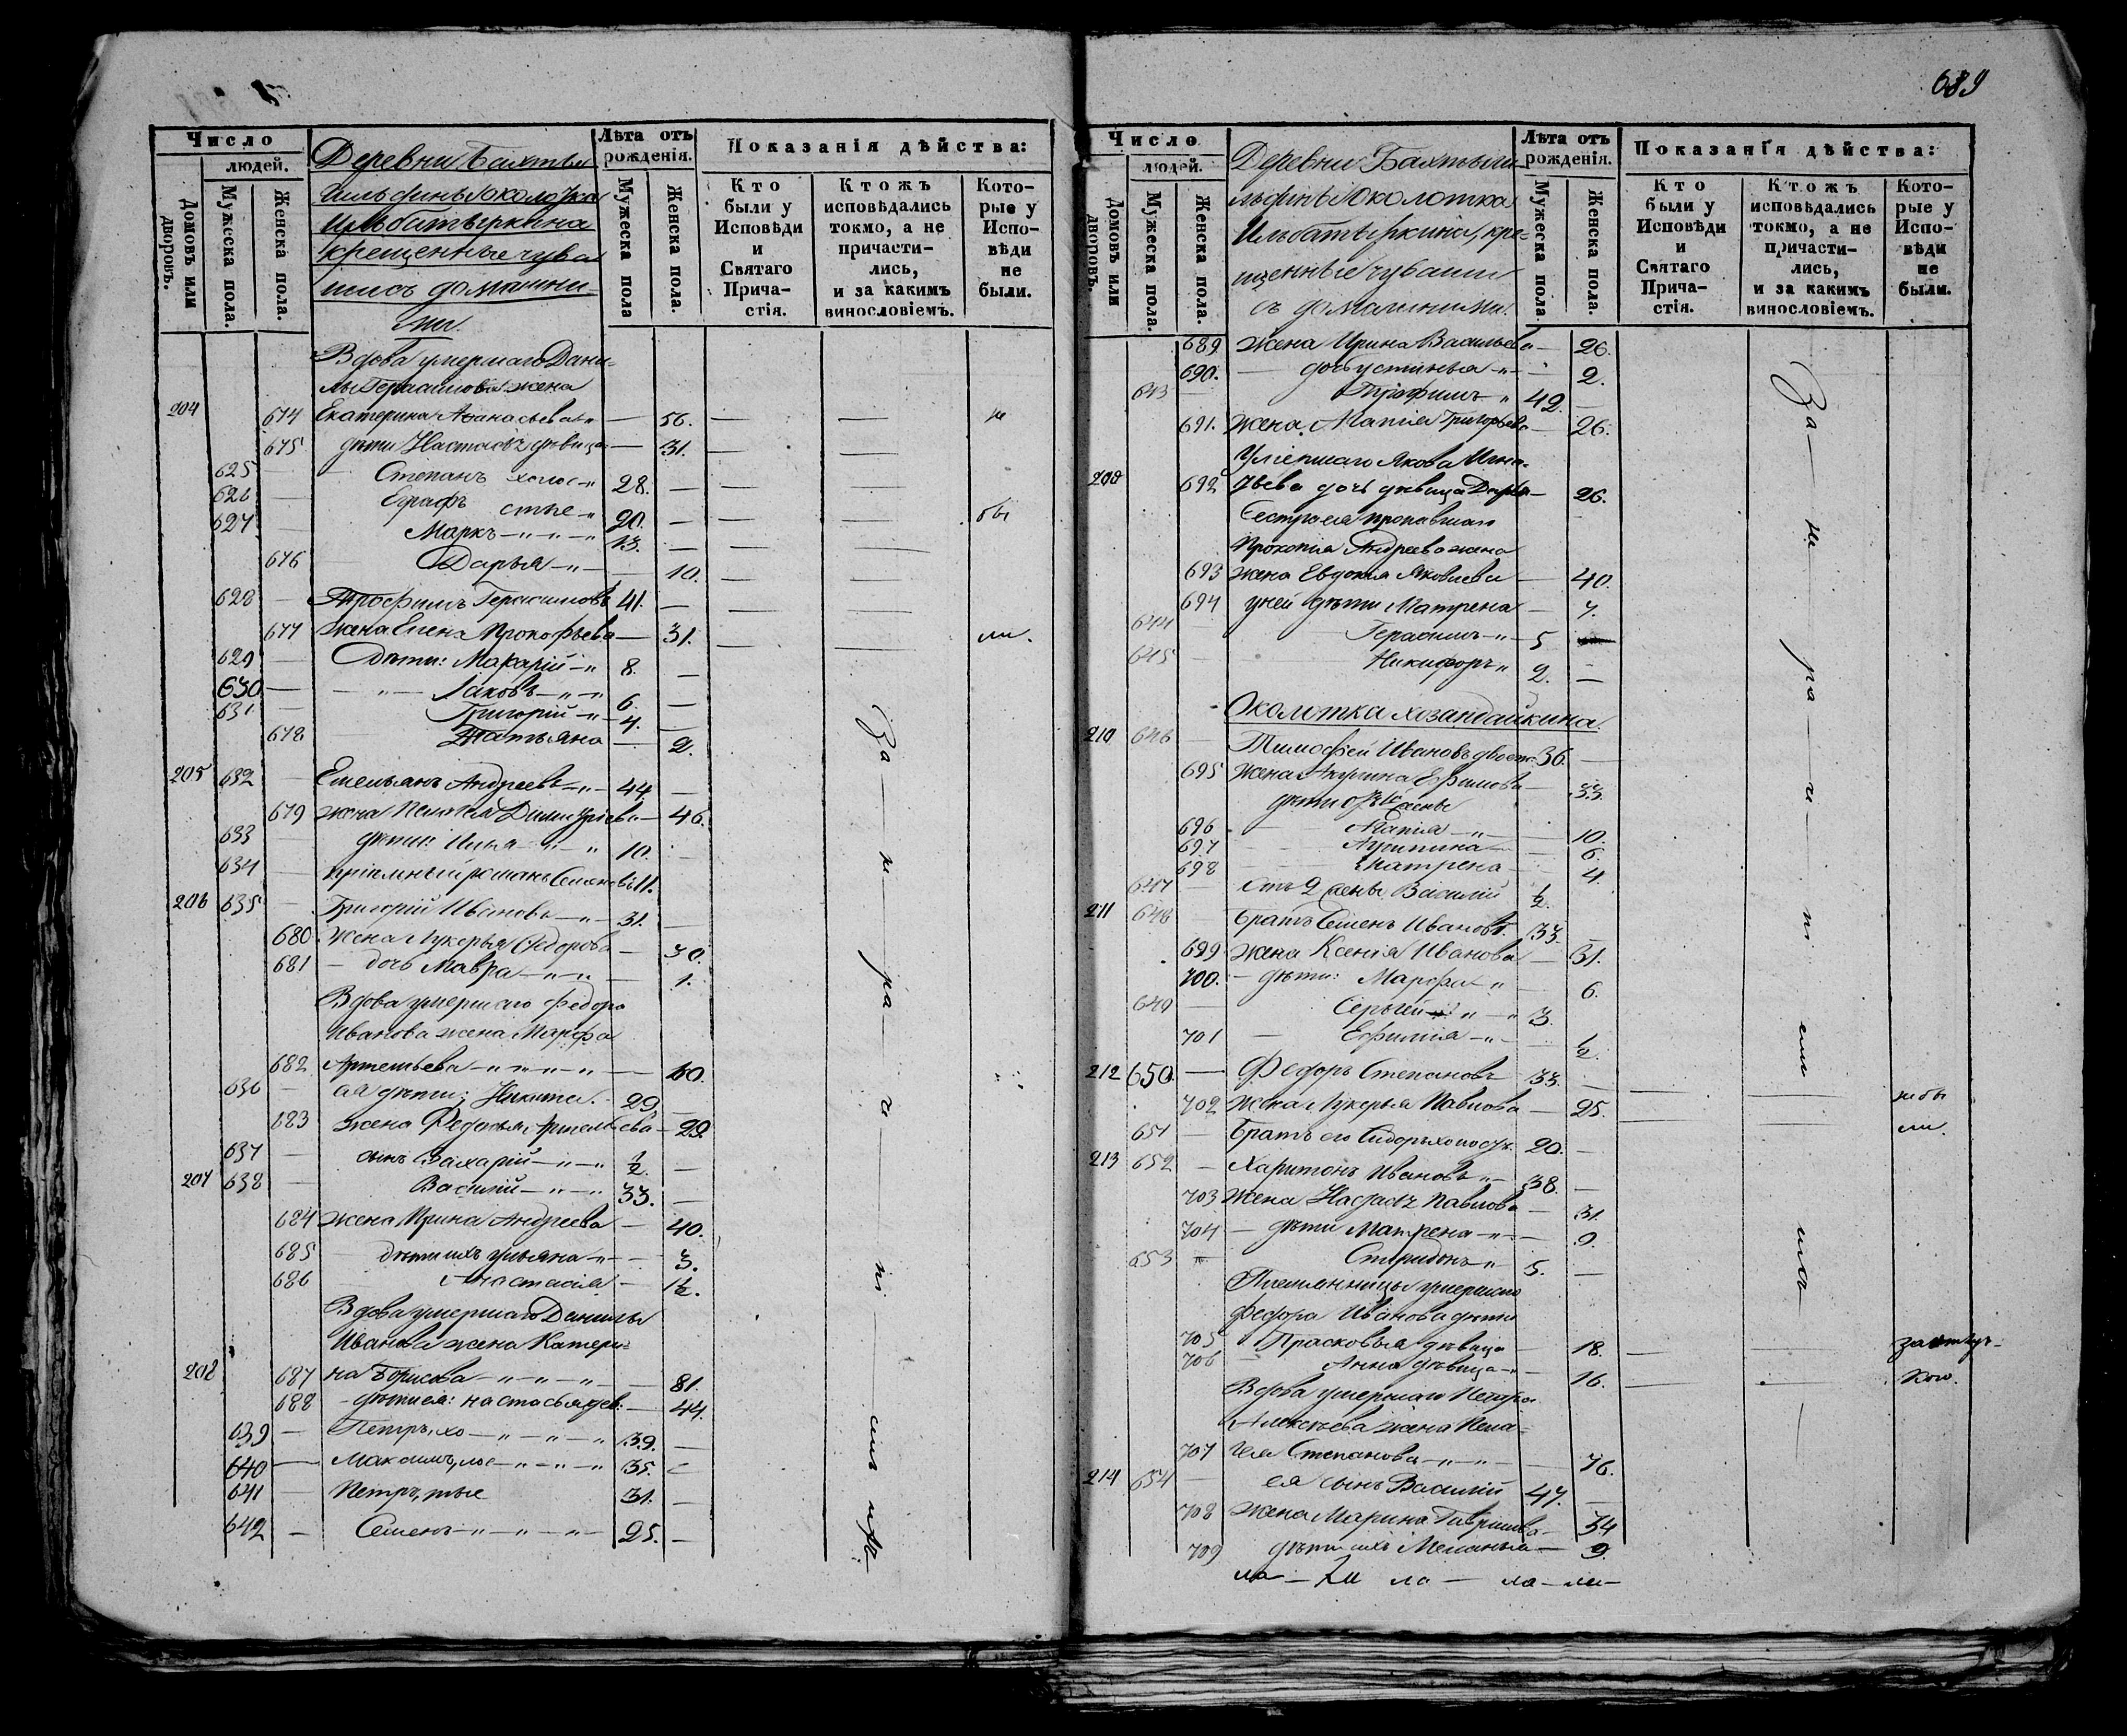 Число
людей.
Домовъ или дворовъ.
Мужеска пола.
Женска пола.
Деревни Бахтыг
ильфинъ околотка
Ильбатыркина
крещенные чува
шис домашни-
ми.
Лѣта отъ рожденія.
Мужеска пола
Женска пола.
Показанія дѣйства:
Кто были у Исповѣди и Святаго Прича-стія.
Ктожъ исповѣдались токмо, а не причасти-лись, и за какимъ винословіемъ.
Кото-рые у Испо-вѣди не были.
Вдова умершаго Дани-
лы Герасимова жена
204 674 Екатерина Афанасьева 56. не
675 дѣти Настасья дѣвица 31.
625 Степанъ холос 28.
626 Еграфъ 20. бы
627 Маркъ 13.
676 Дарья 10.
628 Трофимъ Герасимовъ 41.
677 Жена Елена Прокофьева 31. ли.
629 дѣти: Макарій 8.
630 Іаковъ 6.
631 Григорій 4.
678 Татьяна 2.
205 632 Емельянъ Андреевъ 44.
679 жена Пелагея Димитріева 46.
633 дѣти: Илья 10.
634 пріемный романъ Семеновъ 11.
206 635 Григорій Ивановъ 31.
680 Жена Лукерья Федорова 30.
681 дочь Мавра 1.
Вдова умершаго Федора
Иванова жена Марфа
682 Артемьева 60.
636 ея дѣти; Никита. 29
683 жена Федосья Артемьева 29.
637 сынъ Захарій ½.
207 638 Василій 33.
684 жена Ирина Андреева 40.
685 дѣти ихъ ульяна 3.
686 Анастасія 1½.
Вдова умершаго Данилы
Иванова жена Катери-
208 687 на Борисова 81.
688 дѣти ея: настасья дев: 44.
639 Петръ, хо 39.
640 Максимъ, лос 35.
641 Петръ, тые 31.
642 Семенъ 25.
За-не-ра-че-ні-емъ
689
Число
людей.
Домовъ или дворовъ.
Мужеска пола.
Женска пола.
Деревни Бахтыги-
льфинъ околотка
Ильбатыркина, кре-
щенные чуваши
съ домашними.
Лѣта отъ рожденія.
Мужеска пола.
Женска пола.
Показанія дѣйства:
Кто были у Исповѣди и Святаго Прича-стія.
Ктожъ исповѣдались токмо, а не причасти-лись, и за какимъ винословіемъ.
Кото-рые у Испо-вѣди не были.
689 жена Ирина Васильева 26.
690. дочь устинья 2.
643 Трофимъ 42.
691. жена Марія Григорьева 26.
Умершаго Якова Игна-
209 692 тьева дочь дѣвица Дарья 26.
Сестра ея пропавшаго
Прокопія Андреева жена
693 жена Евдокія Яковлева 40.
694 у ней дѣти Матрена 7.
644 Герасимъ 5
645 Никифоръ 2.
Околотка хозандайкина.
210 646 Тимофей Ивановъ двоеж. 36.
695 жена Акулина Ефимова 33.
дѣти отъ 1й жены
696 Марія 10.
697 Акулина 6.
698 Матрена 4.
647 отъ 2 жены Василій ½.
211 648 Братъ Семенъ Ивановъ. 33.
699 жена Ксенія Иванова 31.
700. дѣти: Марфа 6.
649 Сергѣй 3.
701 Ефимія ½.
212 650. Федоръ Степановъ 33.
702 Жена Лукерья Павлова 25. не бы
651 Братъ его Сидоръ холост. 20. ли.
213 652 Харитонъ Ивановъ 38.
703 жена Настасья Павлова 31.
704 дѣти Матрена 9.
653 Спиридонъ 5.
Племянницы умершаго
Федора Иванова дѣти
705 Прасковья дѣвица 18. за отлуч-
706 Анна дѣвица 16. кою.
Вдова умершаго Петра
Алексѣева жена Пела-
707 гея Степанова 76.
214 654 ея сынъ Василій 47.
708 жена Марина Гаврилова 34
709 дѣти ихъ Меланья 9.
За-не-ра-че-ні-емъ